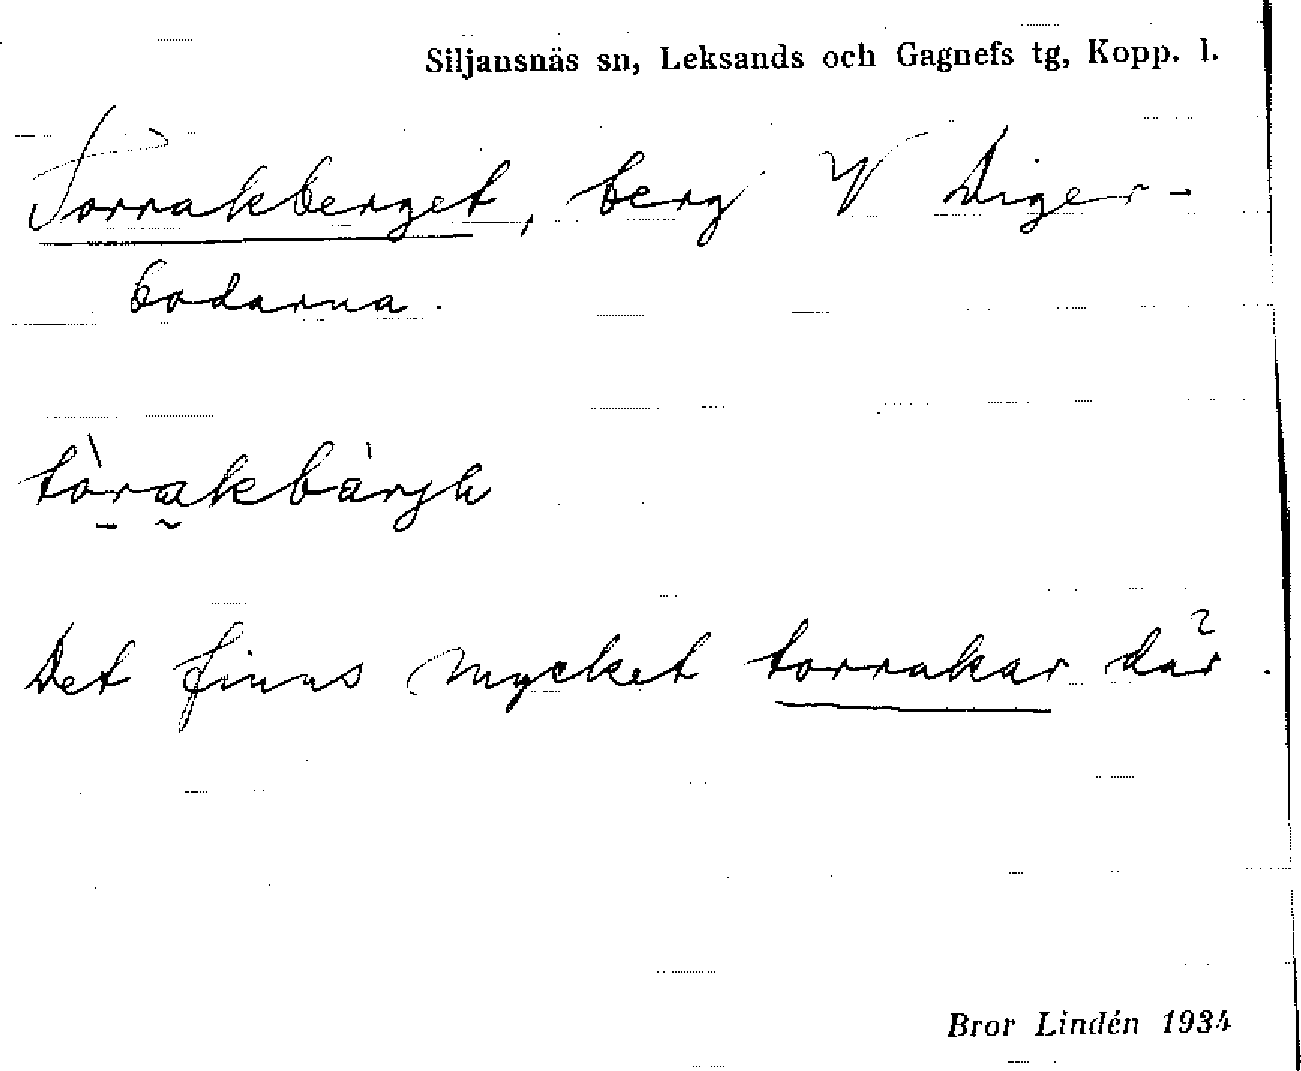 Siljansnäs sn, Leksands och Gagnefs tg, Kopp. l.
Torrakberget, berg V Diger-
bodarna.
tòrakbàrjä
Det finns mycket torrakar där.
Bror Lindén 1934